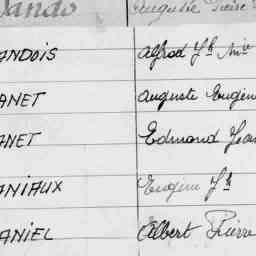 Dando Auguste Pierre
ANDOIS Alfred Jh Mie
ANET Auguste Eugèn
ANET Edmond Jea
ANIAUX Eugène Jh
ANIEL Albert Pierre